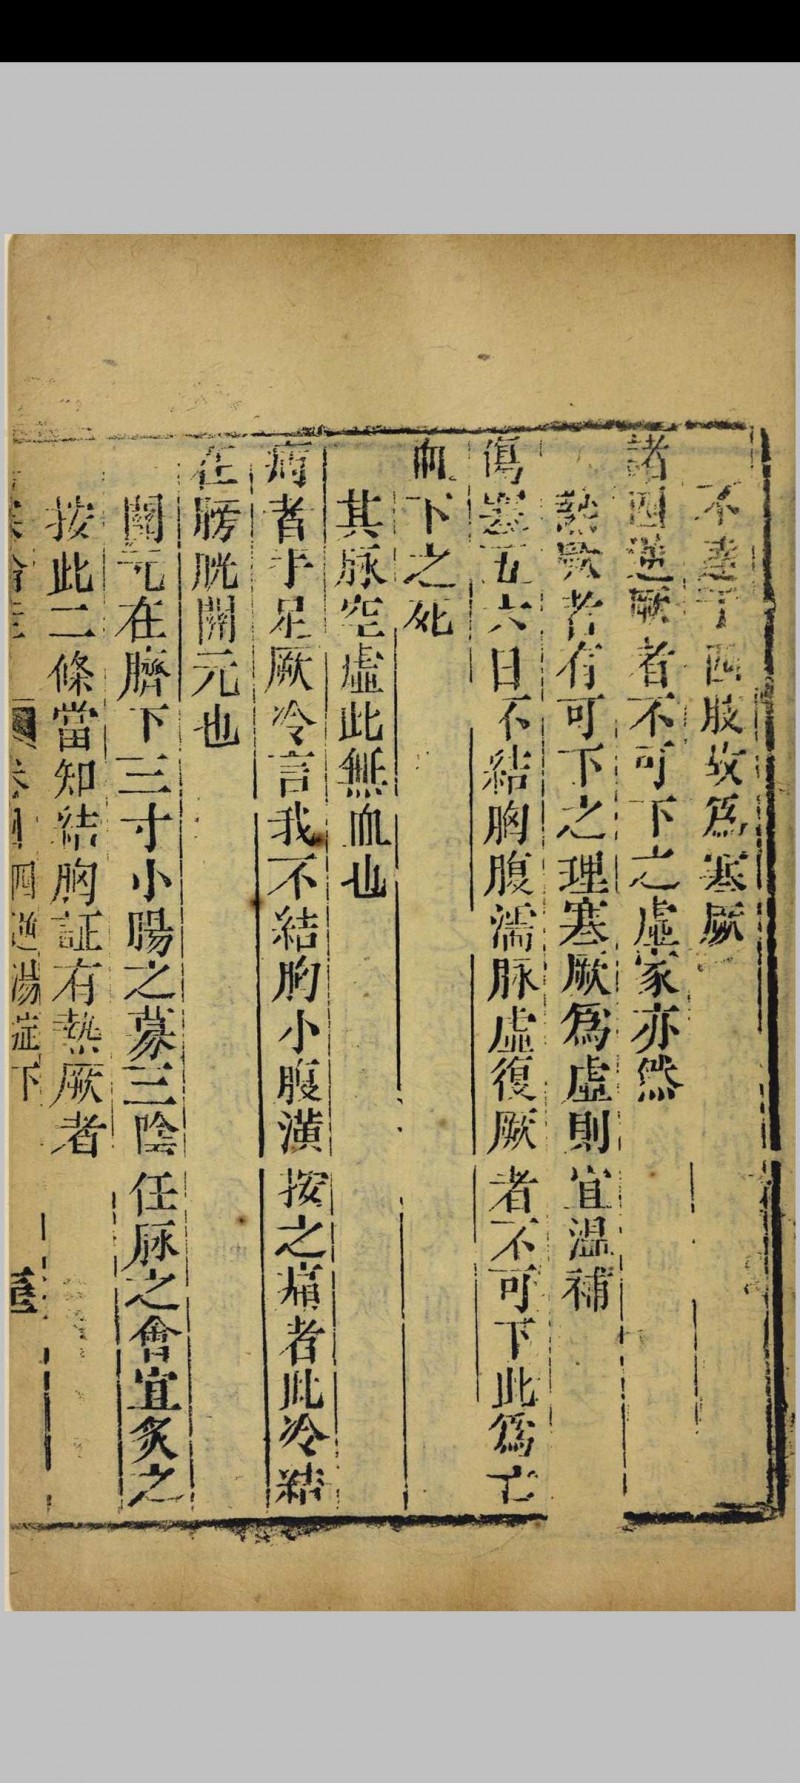 不達于四肢故爲寒厥
諸四逆厥者不可下之虛家亦然
熱厥者有可下之理寒厥爲虛則宜温補
傷寒五六日不結胸腹濡脉虛復厥者不可下此爲亡
血下之死
其脉空虛此無血也
病者手足厥冷言我不結胸小腹滿按之痛者此冷結
在膀胱關元也
關元在臍下三寸小腸之募三陰任脉之會宜灸之
按此二條當知結胸証有熱厥者
卷四四逆湯症下